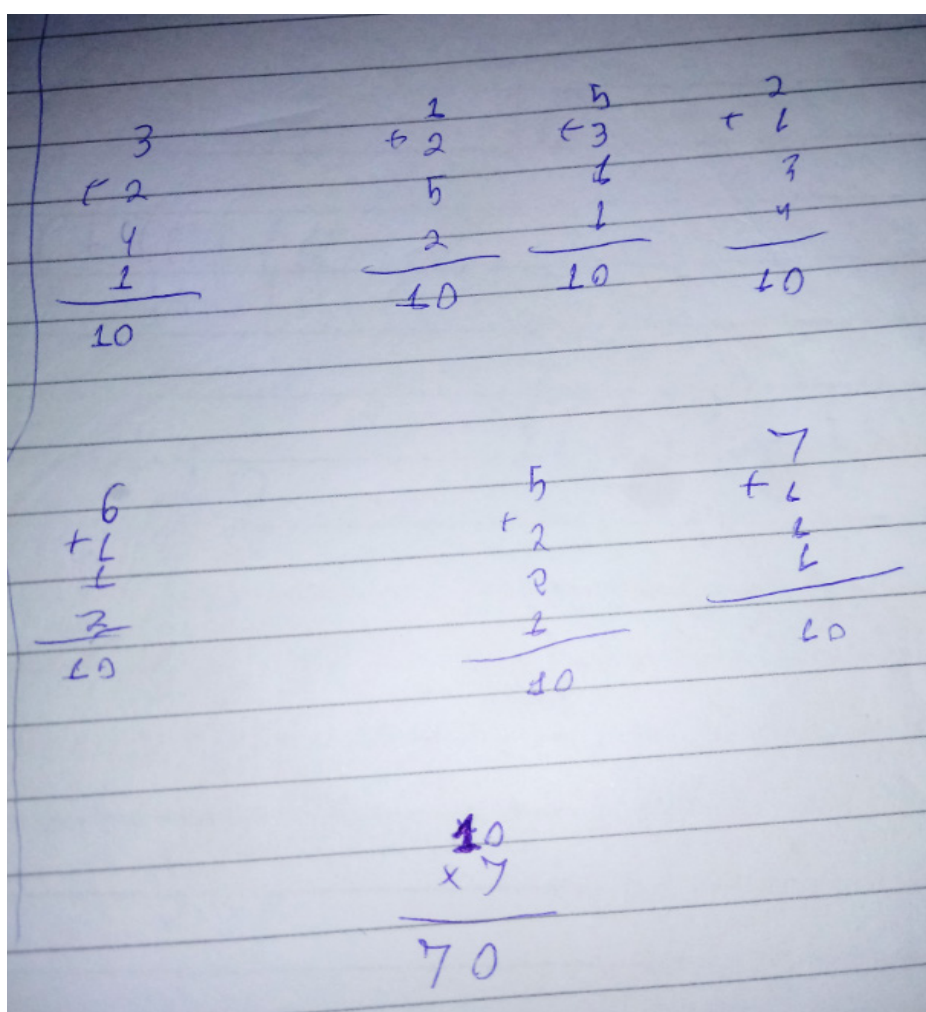 3
+ 2
4
1
10
1
+ 2
5
2
10
5
+ 3
1
1
10
2
+ 1
3
4
10
6
+ 1
1
2
10
5
+ 2
2
1
10
7
+ 1
1
1
10
10
x 7
70